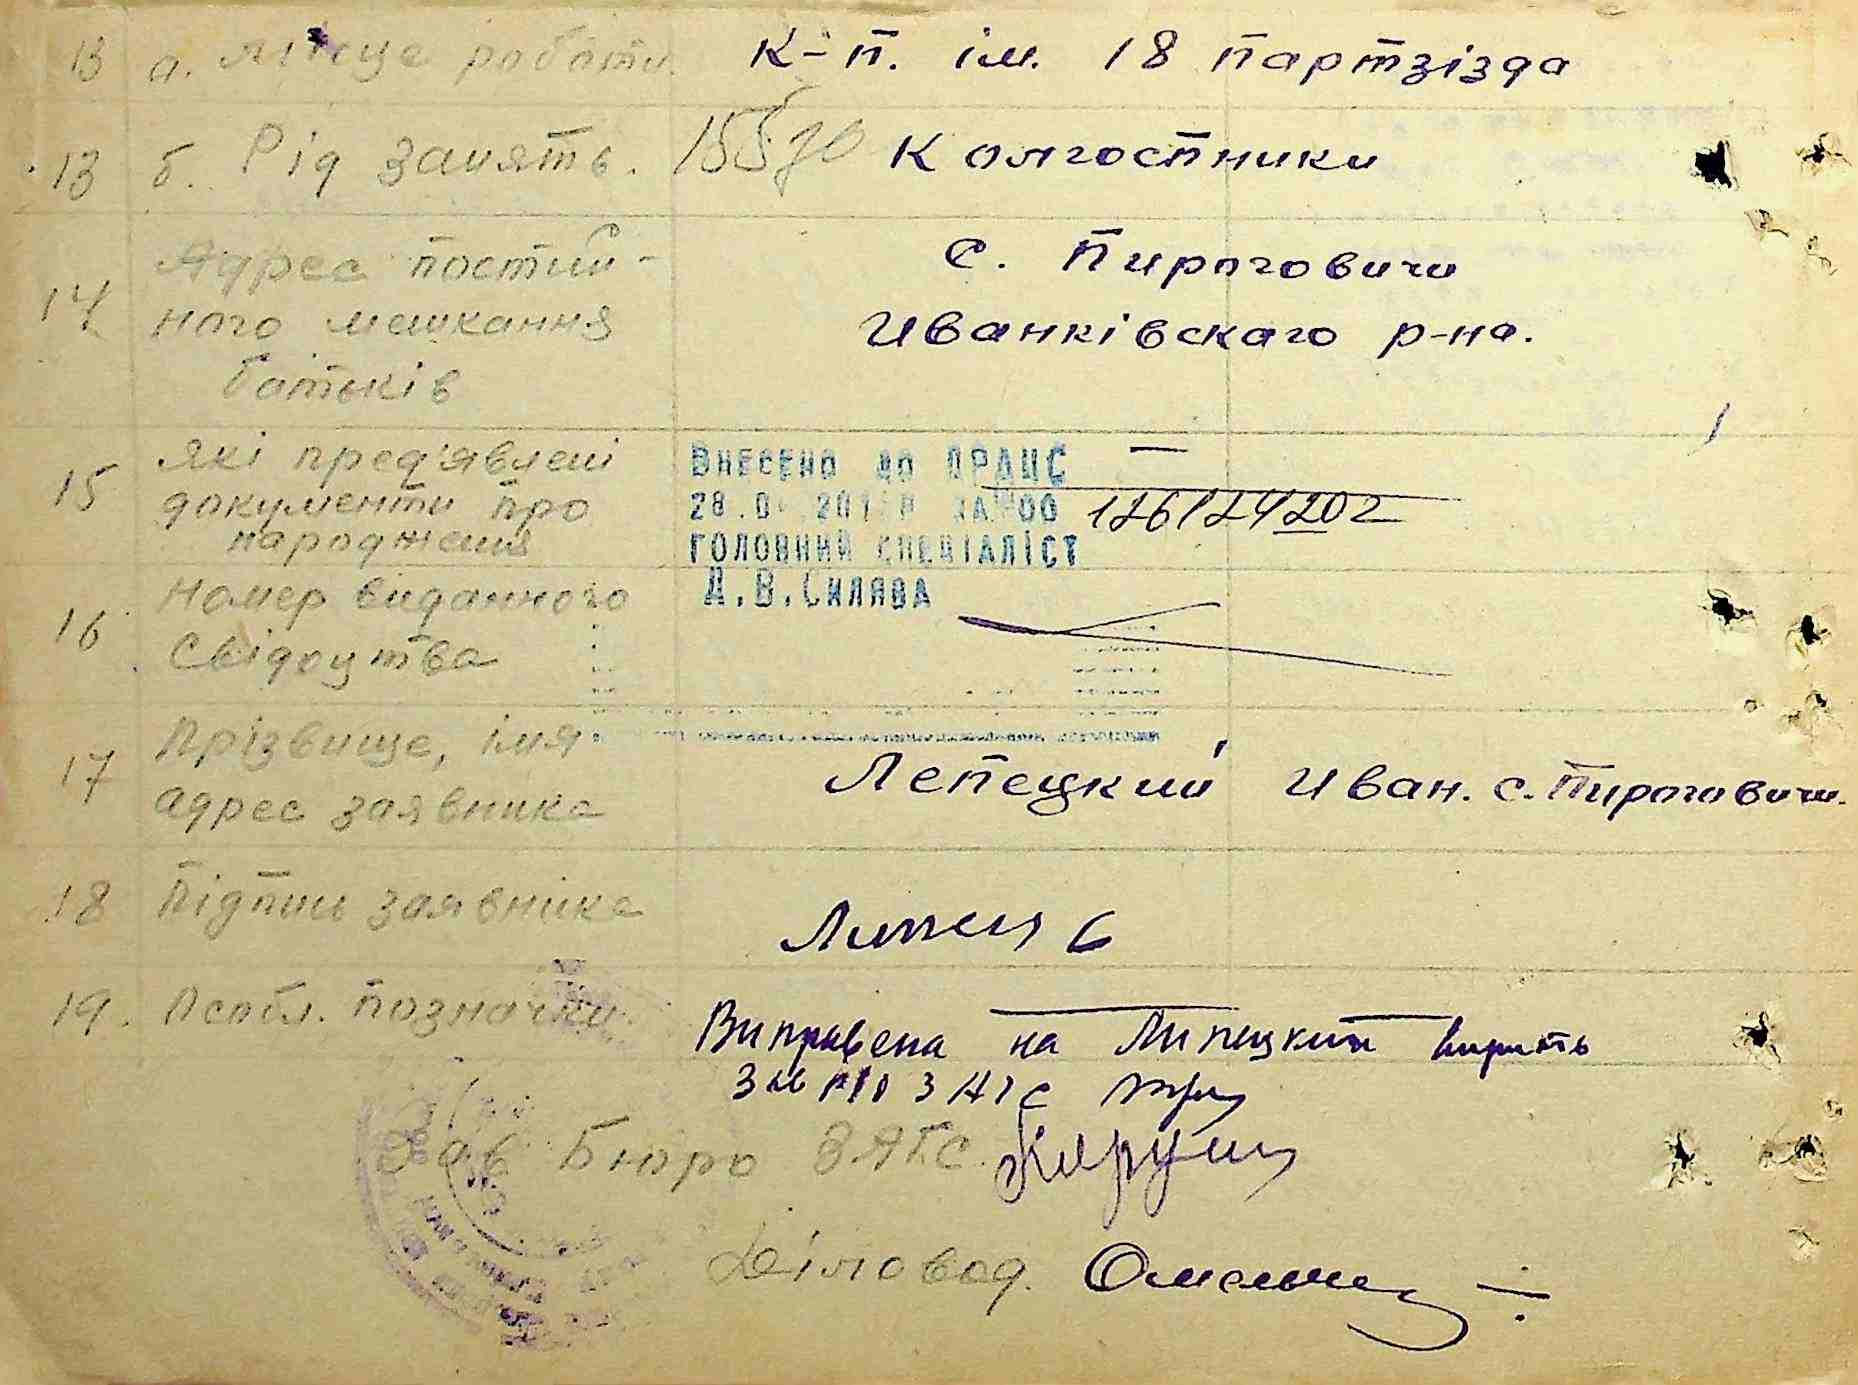 13 а. Місце роботи. К-п. ім. 18 партзізда
13 б. Рід занять. Колгоспники
14 Адрес постій-
ного мешкання
батьків
с. Пироговичи
Иванківскаго р-на.
15 які пред'явлені
документи про
народження
Внесено до ДРАЦС
ГОЛОВНИЙ СПЕЦІАЛІСТ
Д.В.Силява
16 Номер виданного
свідоцтва
17 Прізвище, імя
адрес заявника
Лепецкий Иван. с. Пироговичи.
18 Підпись заявника
19. Особл. позначки
Виправлена на Липецкий
Зав Бюро ЗАГС.
Діловод.